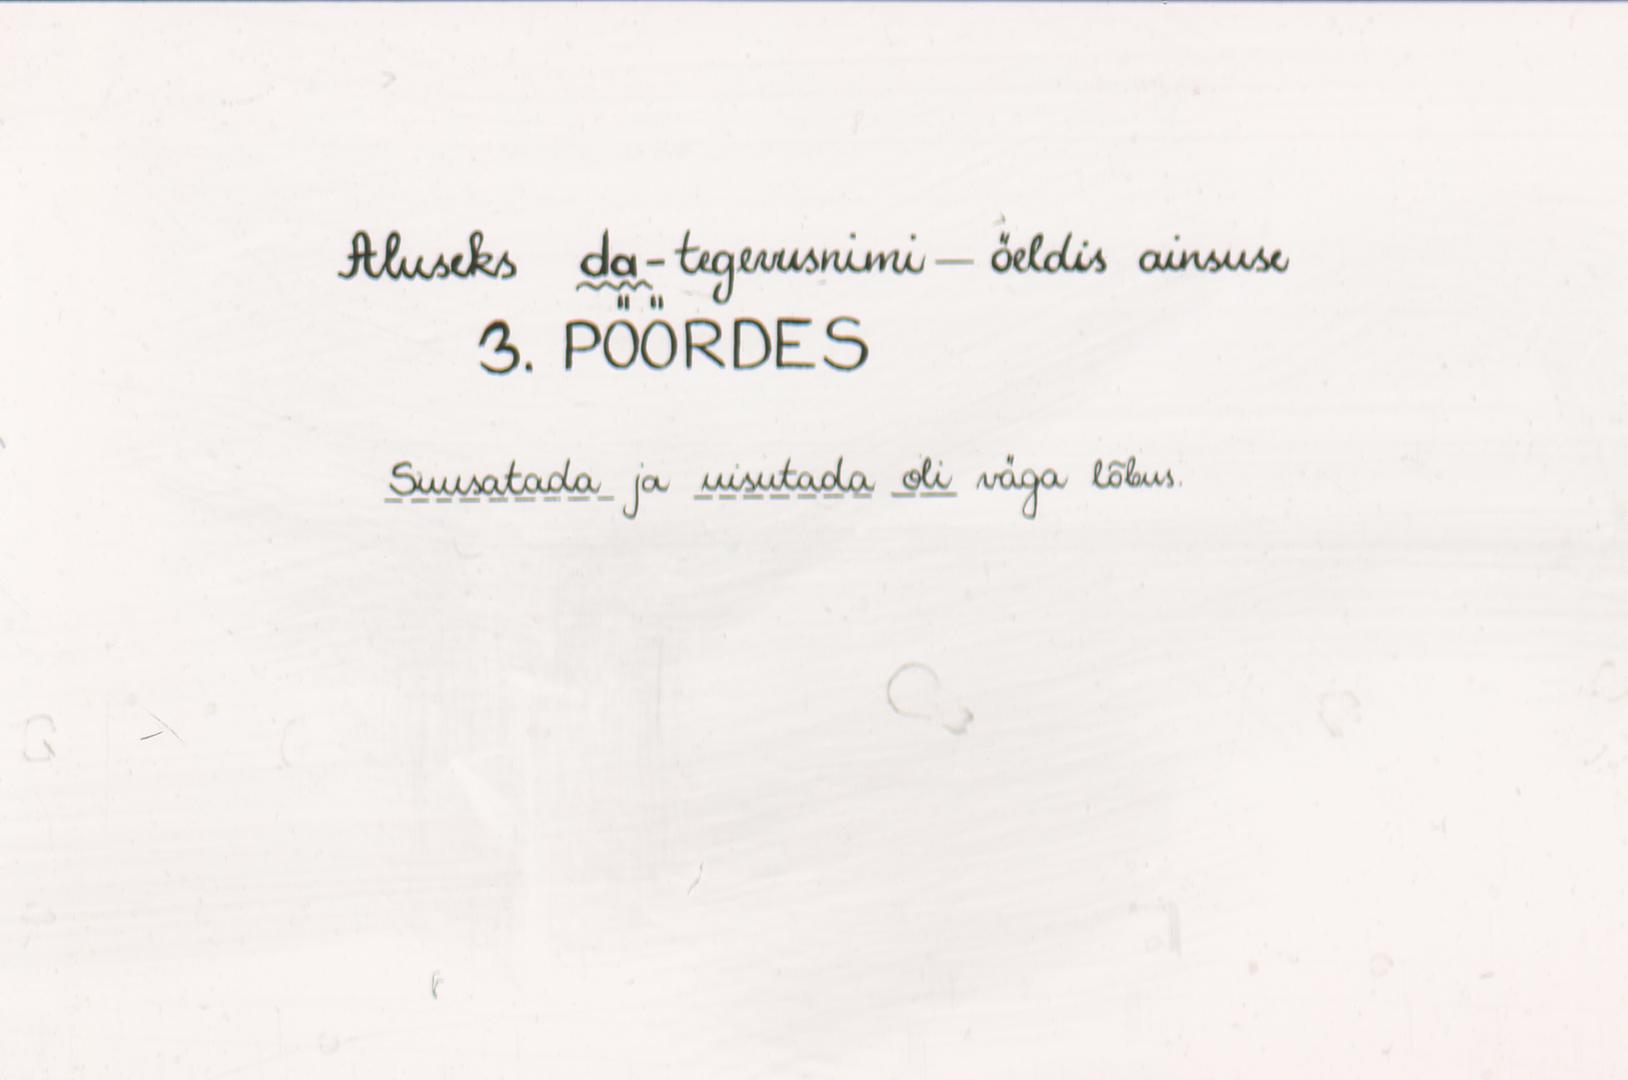 Aluseks da-tegevusnimi — öeldis ainsuse
3. PÖÖRDES
Suusatada ja uisutada oli väga lõbus.